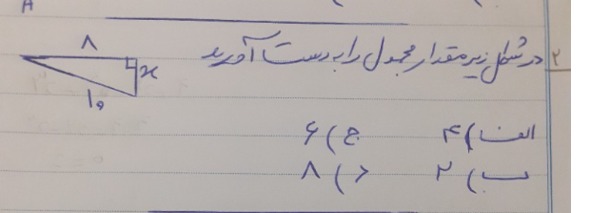 A
۲ در شکل زیر مقدار مجهول را به دست آورید
۸
x
۱۰
الف) ۴ ج) ۶
ب) ۲ د) ۸